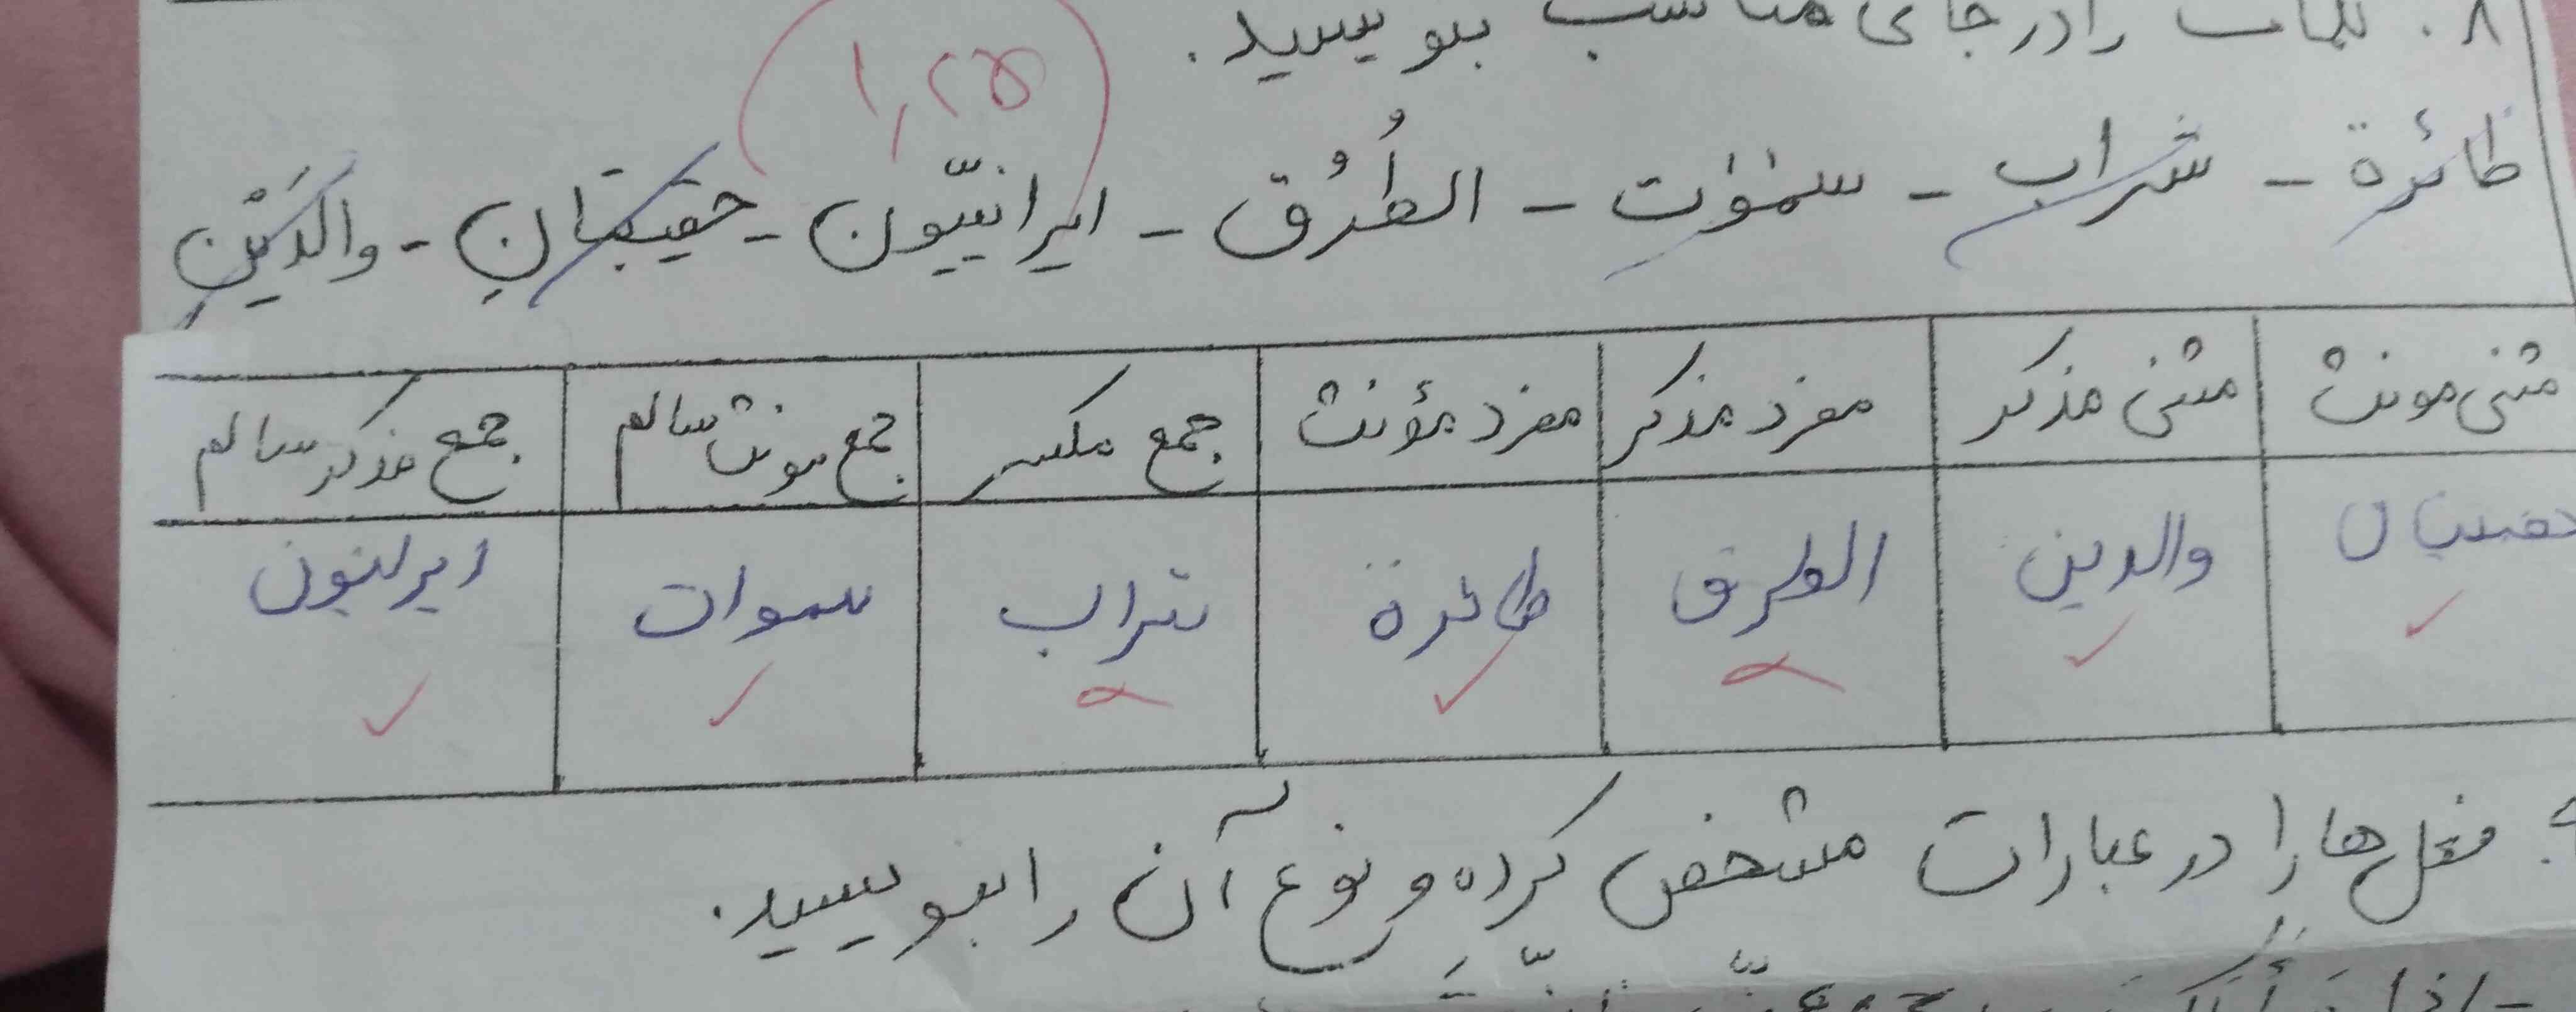 ۸. کلمات را در جای مناسب بنویسید.
۱,۲۵
طائرة - شراب - سمٰوٰت - الطُرُقُ - ایرانیّون - حقیبتانِ - والدَیْنِ
مثنی مونث مثنی مذکر مفرد مذکر مفرد مؤنث جمع مکسر جمع مونث سالم جمع مذکر سالم
والدین الطرق طائرة شراب سموات ایرانیون
فعل ها را در عبارات مشخص کرده و نوع آن را بنویسید.